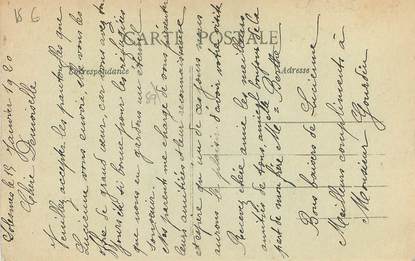 CARTE POSTALE
Correspondance
Adresse
le 13 Janvier 1920
Chère Demoiselle
Veuillez accepter les pantoufles que
Lucienne vous envoie et vous les
offre de grand cœur, car vous avez été
si bonne pour les réfugiés
que nous en gardons un éternel
souvenir.
Mes parents me charge de vous présenter
leurs amitiés et leur reconnaissance
et espère qu'un de ces jours nous
aurons le plaisir d'avoir votre visite
Recevez chère amie les meilleures
amitiés de tous, amitiés toutes de la
part de moi par Mlle Berthe
Bons baisers de Lucienne
Meilleurs compliments à
Monsieur Gourdin